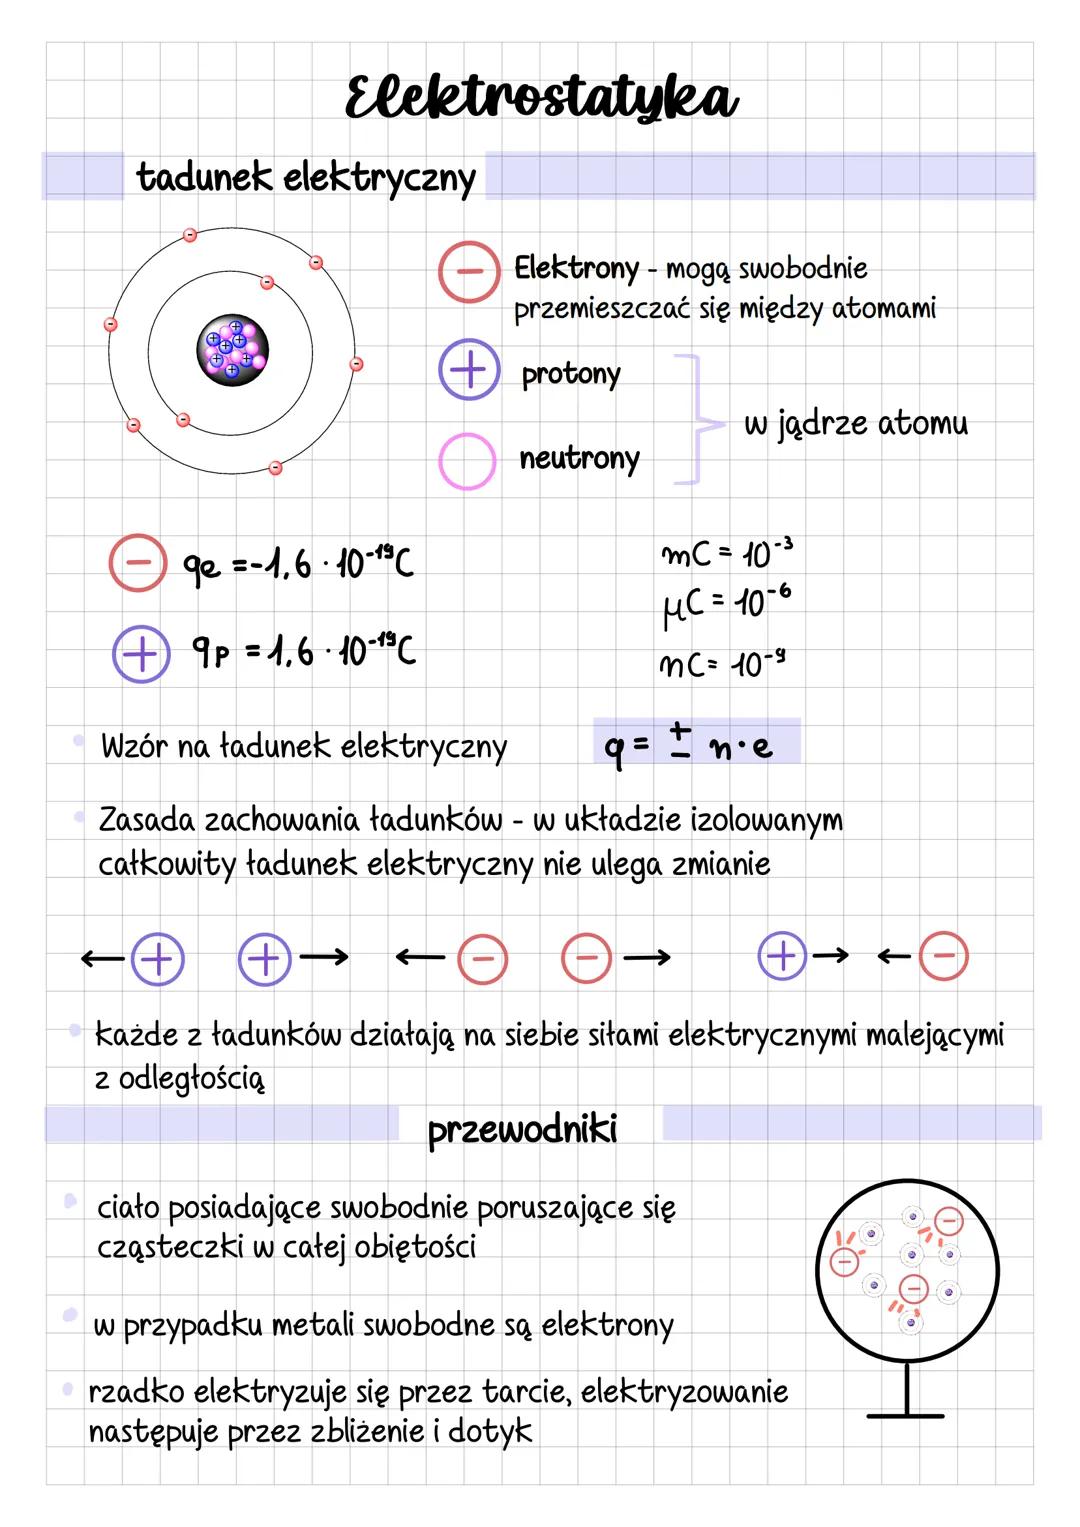 Elektrostatyka
ładunek elektryczny
- Elektrony - mogą swobodnie
przemieszczać się między atomami
+ protony
neutrony
w jądrze atomu
- qe = -1,6 · 10⁻¹⁹C
mC = 10⁻³
μC = 10⁻⁶
+ qp = 1,6 · 10⁻¹⁹C
nC = 10⁻⁹
• Wzór na ładunek elektryczny
q = ± n·e
• Zasada zachowania ładunków - w układzie izolowanym
całkowity ładunek elektryczny nie ulega zmianie
← + + → ← - - → + → ← -
• każde z ładunków działają na siebie siłami elektrycznymi malejącymi
z odległością
przewodniki
• ciało posiadające swobodnie poruszające się
cząsteczki w całej objętości
• w przypadku metali swobodne są elektrony
• rzadko elektryzuje się przez tarcie, elektryzowanie
następuje przez zbliżenie i dotyk